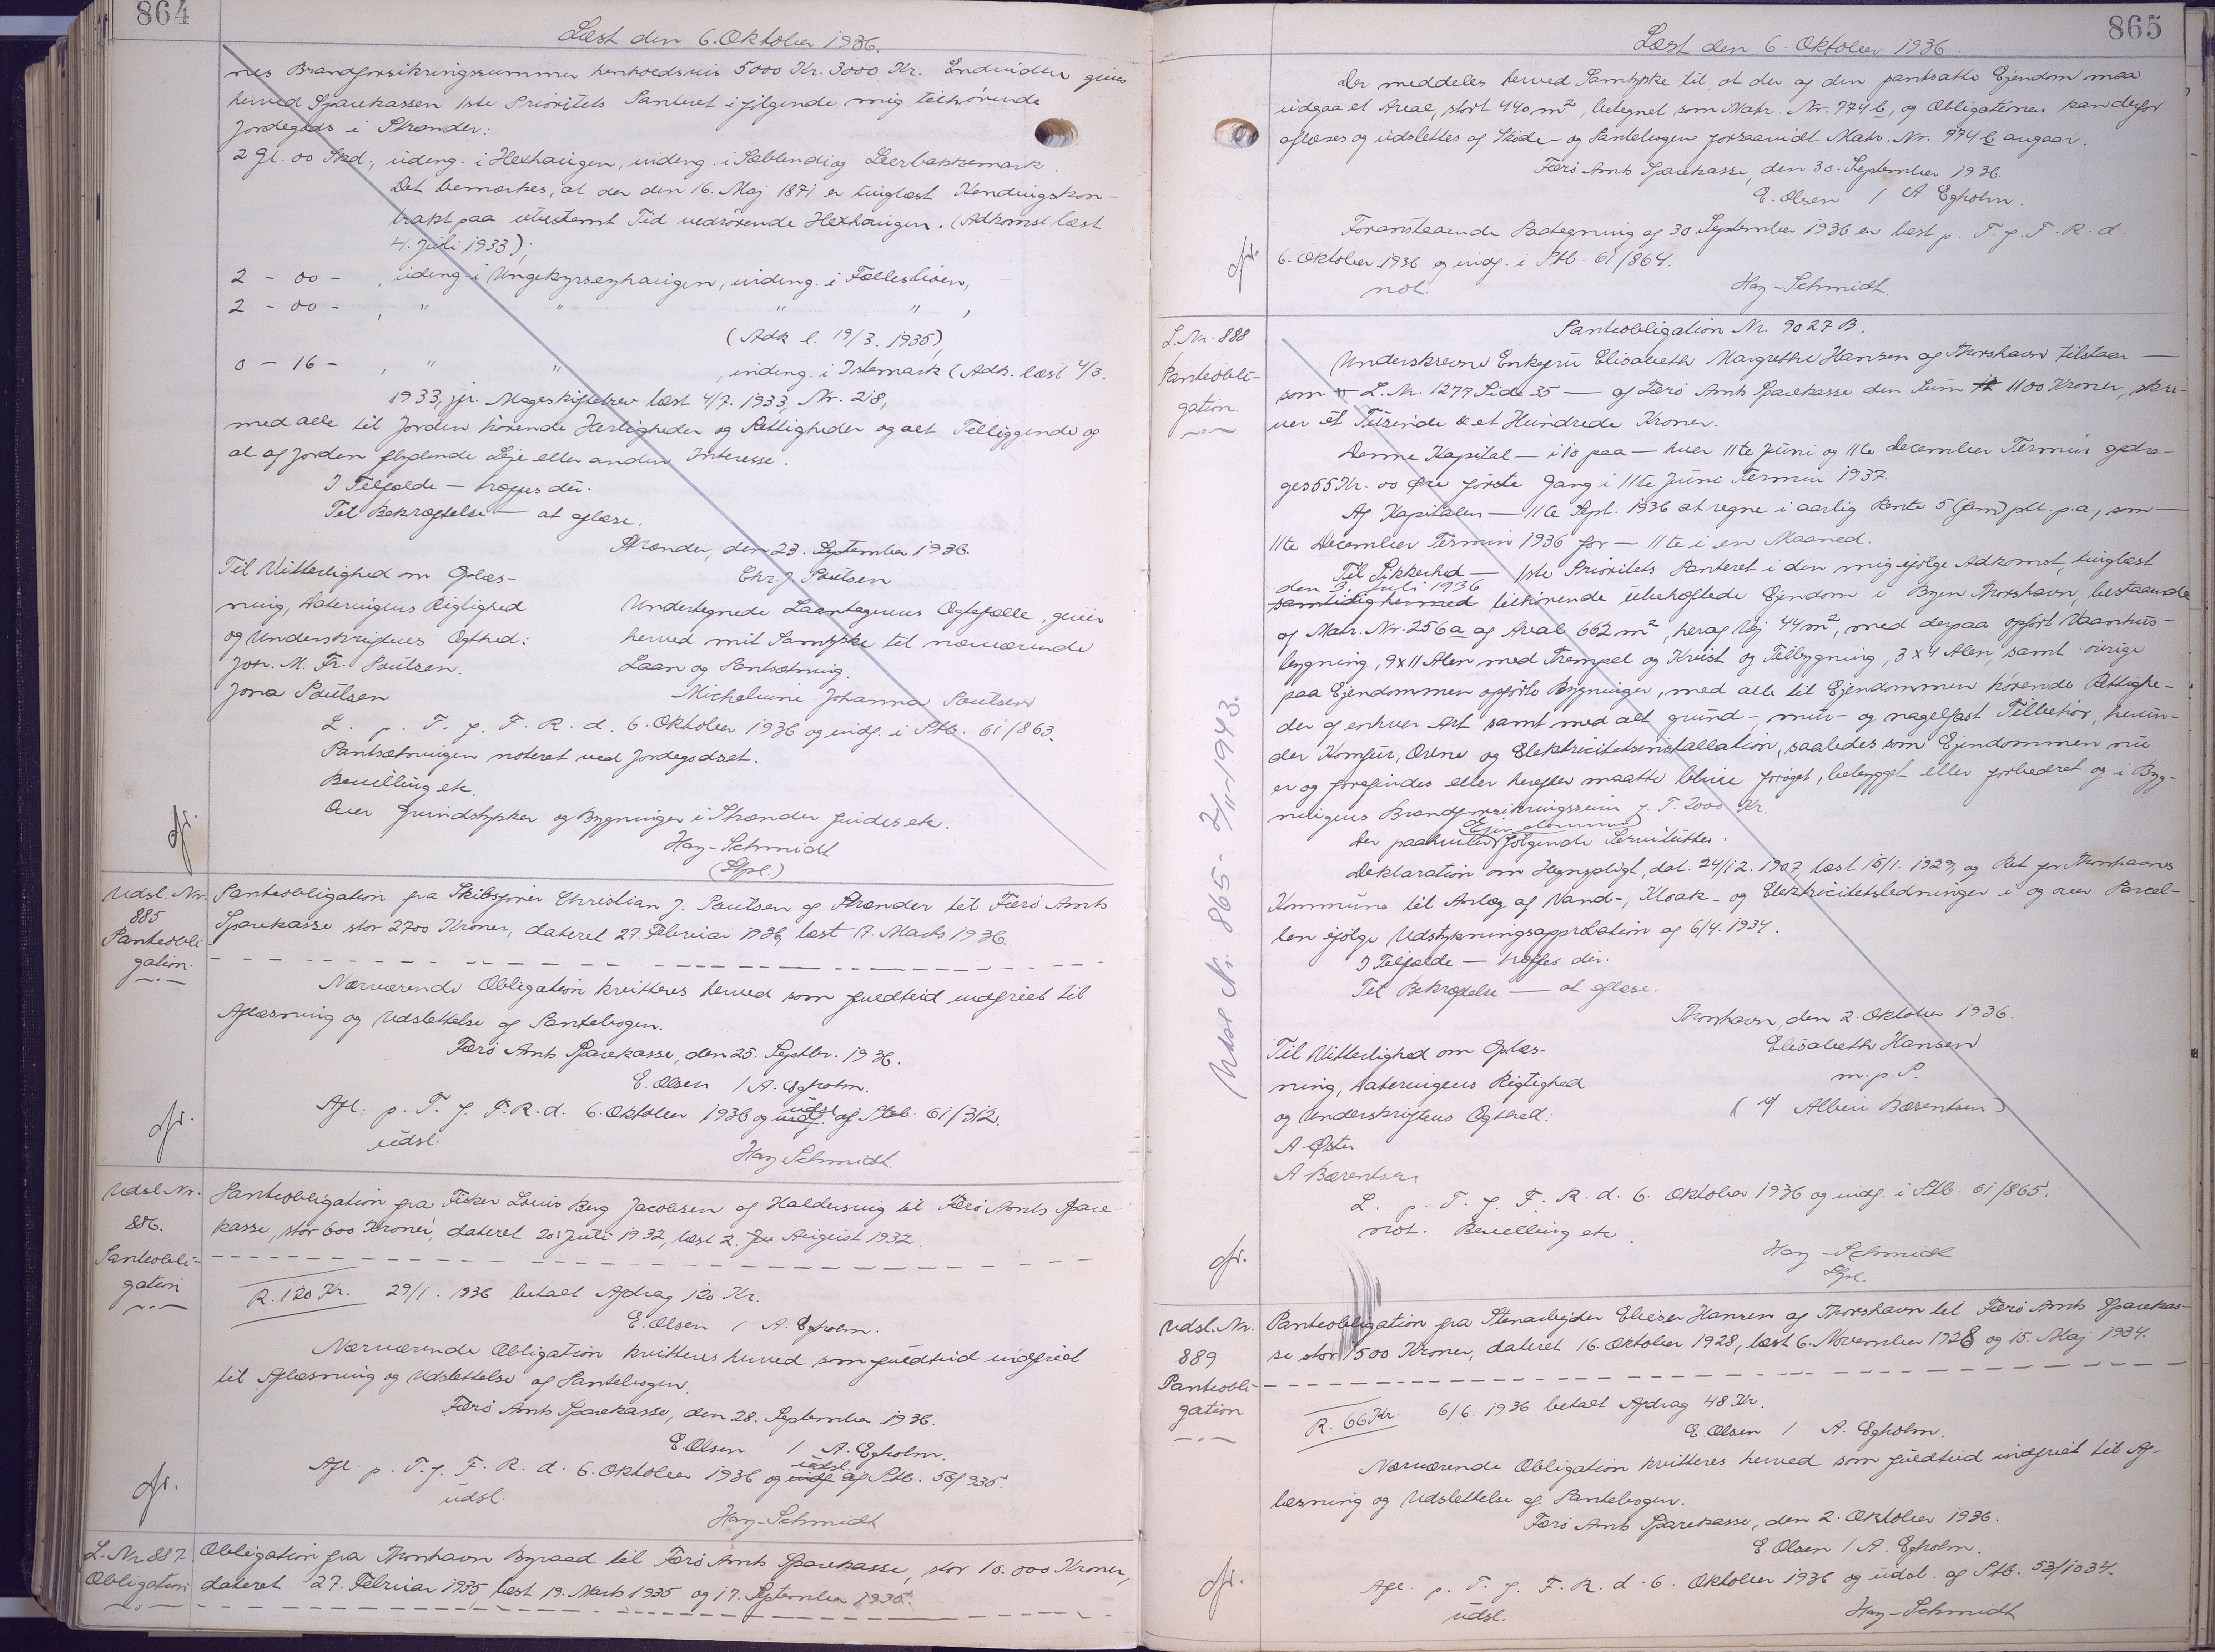 864
Læst den 6. Oktober 1936.
nes Brandforsikringssummer henholdsvis 5000 Kr. 3000 Kr. Endvidere gives
herved Sparekassen 1ste Prioritets Panteret i følgende mig tilhørende
Jordegods i Strænder:
2 Gl. 00 Skd., udeng. i Hexhaugen, indeng. i Sæblendi og Leerbakkemark.
Det bemærkes, at der den 16. Maj 1871 er tinglæst Kendingskon-
trakt paa ubestemt Tid vedrørende Hexhaugen. (Adkomst læst
4. Juli 1933);
2 - 00 - , udeng. i Ungekyrseyhaugen, indeng. i Fællesbøen,
2 - 00 - , " " " " ,
(Adk. l. 19/3. 1935),
0 - 16 - , " " , indeng. i Istemark (Adk. læst 4/3.
1933, jfr. Mageskiftebrev læst 4/7. 1933, Nr. 218,
med alle til Jorden hørende Herligheder og Rettigheder og alt Tilliggende og
al af Jorden flydende Leje eller anden Interesse.
I Tilfælde — træffes dér.
Til Bekræftelse — at aflæse.
Strænder, den 23. September 1936.
Til Vitterlighed om Oplæs- Chr. J. Poulsen
ning, Dateringens Rigtighed Undertegnede Laantagerens Ægtefælle, giver
og Underskriftens Ægthed: herved mit Samtykke til nærværende
Joh. M. Fr. Poulsen. Laan og Pantsætning.
Jona Poulsen Michelmine Johanna Poulsen
L. p. T. f. F. R. d. 6. Oktober 1936 og indf. i Ptb. 61/863.
Pantsætningen noteret ved Jordegodset.
Bevilling etc.
Over Grundstykker og Bygninger i Strænder findes etc.
Hay-Schmidt
(Stpl.)
Udsl. Nr. Panteobligation fra Skibsfører Christian J. Poulsen af Strænder til Færø Amts
885 Sparekasse stor 2700 Kroner, dateret 27. Februar 1936, læst 17. Marts 1936.
Panteobli-
gation.
Nærværende Obligation kvitteres herved som fuldtud indfriet til
Aflæsning og Udslettelse af Pantebogen.
Færø Amts Sparekasse, den 25. Septbr. 1936.
E. Olsen / A. Egholm.
Afl. p. T. f. F. R. d. 6. Oktober 1936 og indf. udsl. af Ptb. 61/312.
udsl.
Hay-Schmidt.
Udsl. Nr. Panteobligation fra Fisker Louis Berg Jacobsen af Haldersvig til Færø Amts Spare-
886. kasse, stor 600 Kroner, dateret 20. Juli 1932, læst 2. Ju August 1932.
Panteobli-
gation
R. 120 Kr. 29/1. 1936 betalt Afdrag 120 Kr.
E. Olsen / A. Egholm.
Nærværende Obligation kvitteres herved som fuldtud indfriet
til Aflæsning og Udslettelse af Pantebogen.
Færø Amts Sparekasse, den 28. September 1936.
E. Olsen / A. Egholm.
Afl. p. T. f. F. R. d. 6. Oktober 1936 og indf. udsl. af Ptb. 56/935.
udsl.
Hay-Schmidt
L. Nr. 887. Obligation fra Thorshavn Byraad til Færø Amts Sparekasse, stor 10.000 Kroner,
Obligation dateret 27. Februar 1935, læst 19. Marts 1935 og 17. September 1935.
865
Læst den 6. Oktober 1936.
Der meddeles herved Samtykke til, at der af den pantsatte Ejendom maa
udgaa et Areal, stort 440 m², betegnet som Matr. Nr. 774 b, og Obligationen kan derfor
aflæses og udslettes af Skøde- og Pantebogen forsaavidt Matr. Nr. 774 b angaar.
Færø Amts Sparekasse, den 30. September 1936.
E. Olsen / A. Egholm.
Foranstaaende Paategning af 30 September 1936 er læst p. T. f. F. R. d.
6. Oktober 1936 og indf. i Ptb. 61/864.
not. Hay-Schmidt.
L. Nr. 888 Panteobligation Nr. 9027 B.
Panteobli-
gation.
Underskrevne Enkefru Elisabeth Margrethe Hansen af Thorshavn tilstaar —
som L. Nr. 1279 Side 35 — af Færø Amts Sparekasse den Sum 1100 Kroner, skri-
ver ét Tusinde & et Hundrede Kroner.
Denne Kapital — i 10 paa — hver 11te Juni og 11te December Termin afdra-
ges 55 Kr. 00 Øre første Gang i 11te Juni Termin 1937.
Af Kapitalen — 11te Sept. 1936 at regne i aarlig Rente 5 (fem) pct. p.a., som —
11te December Termin 1936 for — 11te i en Maaned.
Til Sikkerhed — 1ste Prioritets Panteret i den mig ifølge Adkomst, tinglæst
den 3. Juli 1936
samtidig hermed tilhørende ubehæftede Ejendom i Byen Thorshavn, bestaaende
af Matr. Nr. 256 a af Areal 662 m², heraf Vej 44 m², med derpaa opført Vaanhus-
bygning, 9 x 11 Alen med Trempel og Kvist og Tilbygning, 3 x 4 Alen, samt øvrige
paa Ejendommen opførte Bygninger, med alle til Ejendommen hørende Rettighe-
der af enhver Art samt med alt grund-, mur- og nagelfast Tilbehør, herun-
der Komfur, Ovne og Elektricitetsinstallation, saaledes som Ejendommen nu
er og forefindes eller herefter maatte blive forøget, bebygget eller forbedret og i Byg-
ningens Brandforsikringssum f. T. 2000 Kr.
Ejendommen
Der paahviler følgende Servitutter:
Deklaration om Hegnspligt, dat. 24/12. 1907, læst 15/1. 1929, og Ret for Thorshavns
Kommune til Anlæg af Vand-, Kloak- og Elektricitetsledninger i og over Parcel-
len ifølge Udstykningsapprobation af 6/4. 1934.
I Tilfælde — træffes dér.
Til Bekræftelse — at aflæse.
Thorshavn, den 2. Oktober 1936.
Til Vitterlighed om Oplæs- Elisabeth Hansen
ning, Dateringens Rigtighed m. p. P.
og Underskriftens Ægthed: (v/ Albin Bærentsen)
A Øster
A Bærentsen
L. p. T. f. F. R. d. 6. Oktober 1936 og indf. i Ptb. 61/865.
not. Bevilling etc.
Hay-Schmidt
Stpl.
Udsl. Nr. 865 - 2/11-1943.
Udsl. Nr. Panteobligation fra Stenarbejder Eliezer Hansen af Thorshavn til Færø Amts Sparekas-
889 se stor 1500 Kroner, dateret 16. Oktober 1928, læst 6. November 1928 og 15. Maj 1934.
Panteobli-
gation
R. 66 Kr. 6/6. 1936 betalt Afdrag 48 Kr.
E. Olsen / A. Egholm.
Nærværende Obligation kvitteres herved som fuldtud indfriet til Af-
læsning og Udslettelse af Pantebogen.
Færø Amts Sparekasse, den 2. Oktober 1936.
E. Olsen / A. Egholm.
Afl. p. T. f. F. R. d. 6. Oktober 1936 og udsl. af Ptb. 53/1034.
udsl. Hay-Schmidt